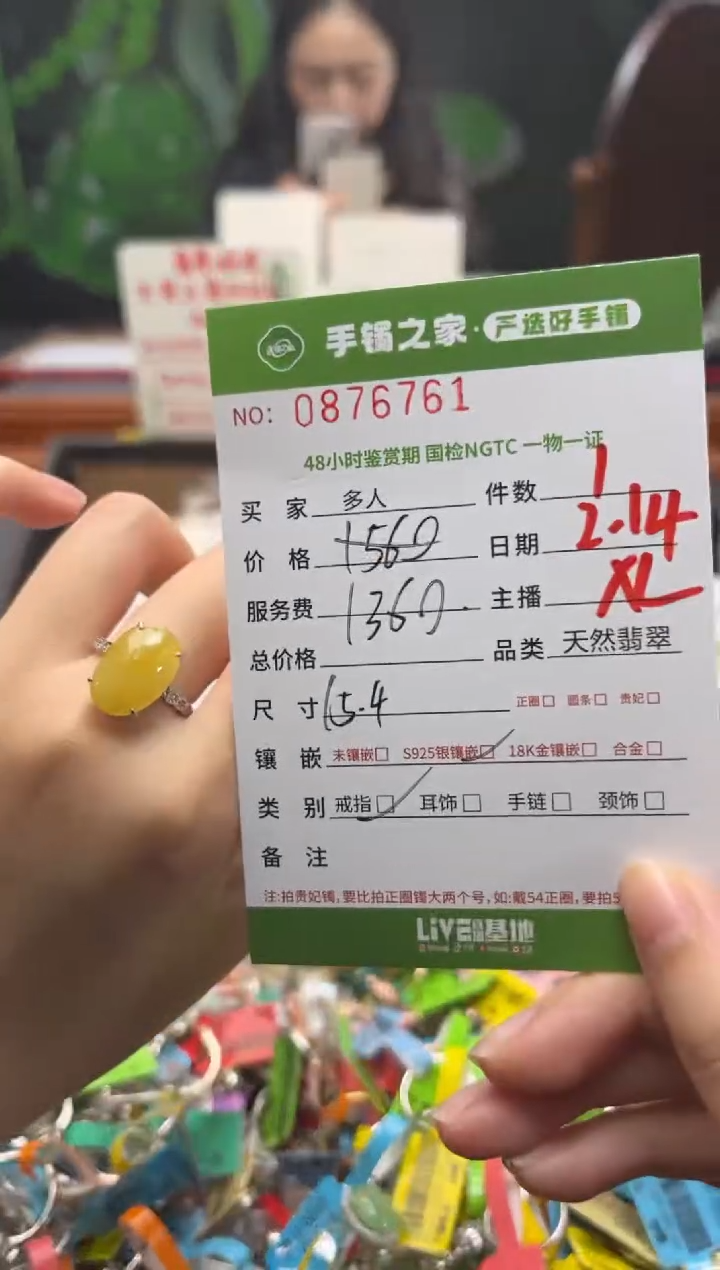 手镯之家·严选好手镯
NO: 0876761
48小时鉴赏期 国检NGTC 一物一证
买 家 多人 件数 1
价 格 1560 日期 2.14
服务费 1360. 主播 XL
总价格 品类 天然翡翠
尺 寸 15.4 正圈□ 圆条□ 贵妃□
镶 嵌 未镶嵌□ S925银镶嵌☑ 18K金镶嵌□ 合金□
类 别 戒指☑ 耳饰□ 手链□ 颈饰□
备 注
注:拍贵妃镯,要比拍正圈镯大两个号,如:戴54正圈,要拍5
LiVE 基地